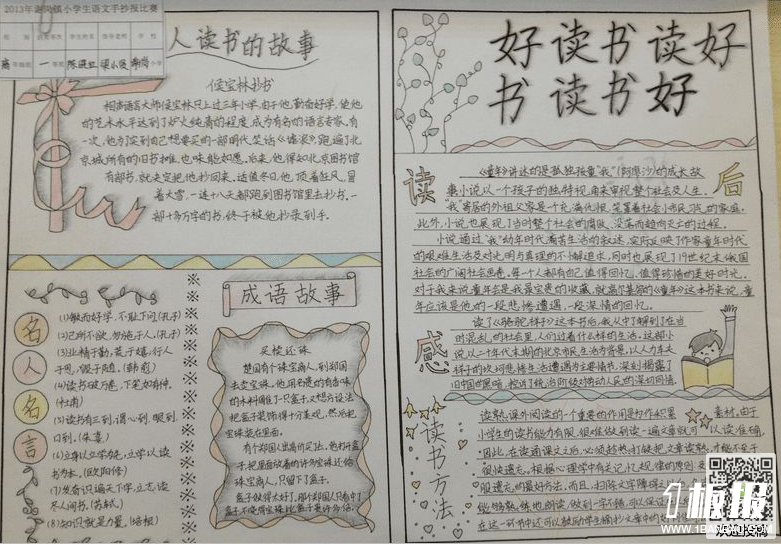 2013年 镇小学生语文手抄报比赛
一
人读书的故事
侯宝林抄书
相声语言大师侯宝林只上过三年小学,由于他勤奋好学,使他
的艺术水平达到了炉火纯青的程度,成为有名的语言专家。有
一次,他为了买到自己想要买的一部明代笑话《谑浪》,跑遍了北
京城所有的旧书摊,也未能如愿。后来,他得知北京图书馆
有部书,就决定把他抄回来。适值冬日,他顶着狂风,冒
着大雪,一连十八天都跑到图书馆里去抄书。一
部十多万字的书,终于被他抄录到手。
名人名言
(1)敏而好学,不耻下问(孔子)
(2)己所不欲,勿施于人。(孔子)
(3)业精于勤,荒于嬉;行成
于思,毁于随。(韩愈)
(4)读书破万卷,下笔如有神。
(杜甫)
(5)读书有三到,谓心到,眼到
口到。(朱熹)
(6)立身以立学为先,立学以读
书为本。(欧阳修)
(7)发奋识遍天下字,立志读
尽人间书。(苏轼)
(8)知识就是力量。(培根)
成语故事
买椟还珠
楚国有个珠宝商人,到郑国
去卖宝珠,他用名贵的有香味
的木料雕了一只盒子,又想方设法
把盒子装饰得十分美观,然后把
宝珠装在里面。
有个郑国人出高价买珠。他打开盒
子,把里面放着的许多宝珠还给
珠宝商人,只留下了盒子。
盒子做得太好了,那个郑国只看中了
好读书读好
书读书好
读后感
《童年》讲述的是孤独孩童“我”(阿廖沙)的成长故
事。小说以一个孩子的独特视角来审视整个社会及人生。
“我”寄居的外祖父家是一个充满仇恨,笼罩着社会小市民习气的家庭,
此外,小说也展现了当时整个社会的腐败、没落而趋向灭亡的过程。
小说通过“我”幼年时代痛苦生活的叙述,实际反映了作家童年时代
的艰难生活及对光明与真理的不懈追求,同时也展现了19世纪末俄国
社会的广阔社会画卷。每一个人都有自己值得回忆,值得珍惜的美好时光。
对于我来说童年会是我最宝贵的收藏,就高尔基写的《童年》这本书来说,童
年应该是他的一段悲惨遭遇,一段深情的回忆。
读了《骆驼祥子》这本书后,我从中了解到了在当
时混乱的社会里,人们过着什么样的生活。这部小
说以二十年代末期的北京市民生活为背景,以人力车夫
祥子的坎坷悲惨生活遭遇为主要情节,深刻揭露了
旧中国的黑暗,控诉了统治阶级对劳动人民的深切同情。
读书方法
读熟,课外阅读的一个重要的作用是为作积累 素材,由于
小学生的读书能力有限,很难做到读一遍文章就可以读准确,
因此,在读诵课文之后,必须趁热打铁把文章读熟,才能不至于
很快遗忘。根据心理学中有关记
1板报
WWW.1BANBAO.COM
欢迎投稿